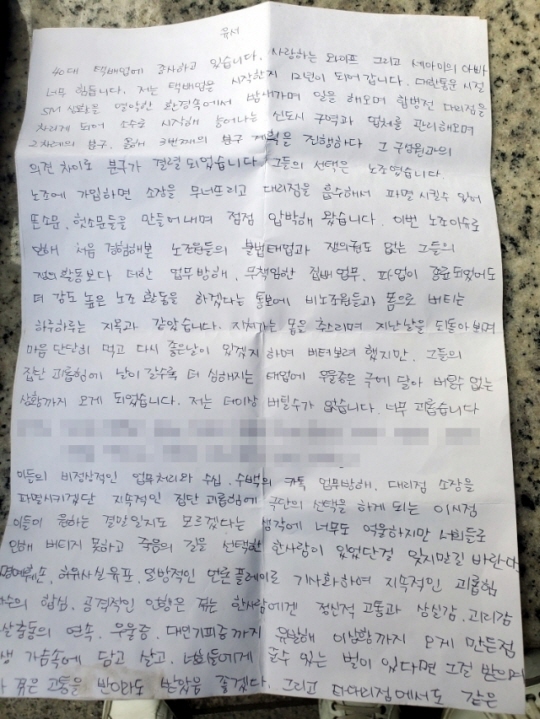 유서
40대 택배업에 종사하고 있습니다. 사랑하는 와이프 그리고 세아이의 아빠
너무 힘듭니다. 저는 택배일을 시작한지 12년이 되어 갑니다. 대한통운 시절
열악한 환경속에서 밤새가며 일을 해오며 합병전 대리점을
차리게 되어 소수로 시작해 늘어나는 신도시 구역과 업체를 관리해오며
2차례의 분구. 올해 3번째의 분구 계획을 진행하다 그 구성원과의
의견 차이로 분구가 결렬 되었습니다. 그들의 선택은 노조였습니다.
노조에 가입하면 소장을 무너뜨리고 대리점을 흡수해서 파멸 시킬수 있어
뜬소문, 헛소문들을 만들어내며 점점 압박해 왔습니다. 이번 노조이슈로
인해 처음 경험해본 노조원들의 불법태업과 쟁의권도 없는 그들의
쟁의활동보다 더한 업무방해, 무책임한 집배업무, 파업이 종료되었어도
더 강도 높은 노조활동을 하겠다는 통보에 비노조원들과 몸으로 버티는
하루하루는 지옥과 같았습니다. 지쳐가는 몸을 추스리며 지난날을 되돌아보며
마음 단단히 먹고 다시 좋은날이 있겠지 하며 버텨보려 했지만, 그들의
집단 괴롭힘에 날이 갈수록 더 심해지는 태업에 우울증은 극에 달아 버틸수 없는
상황까지 오게 되었습니다. 저는 더이상 버틸수가 없습니다. 너무 괴롭습니다
이들의 비정상적인 업무처리와 수십, 수백의 카톡 업무방해, 대리점 소장을
파멸시키겠단 지속적인 집단 괴롭힘에 극단의 선택을 하게 되는 이시점
이들이 원하는 결말일지도 모르겠다는 생각에 너무도 억울하지만 너희들로
인해 버티지 못하고 죽음의 길을 선택한 한사람이 있었단걸 잊지말길 바란다
명예훼손, 허위사실 유포, 일방적인 언론플레이로 기사화하여 지속적인 괴롭힘
합심, 공격적인 언행은 저는 한사람에겐 정신적 고통과 상실감, 괴리감
연속, 우울증, 대인기피증까지 유발해 이상황까지 오게 만든점
가슴속에 담고 살고. 너희들에게 줄수 있는 벌이 있다면 그걸 받으며
고통을 반이라도 좋겠다. 그리고 타대리점에서도 같은